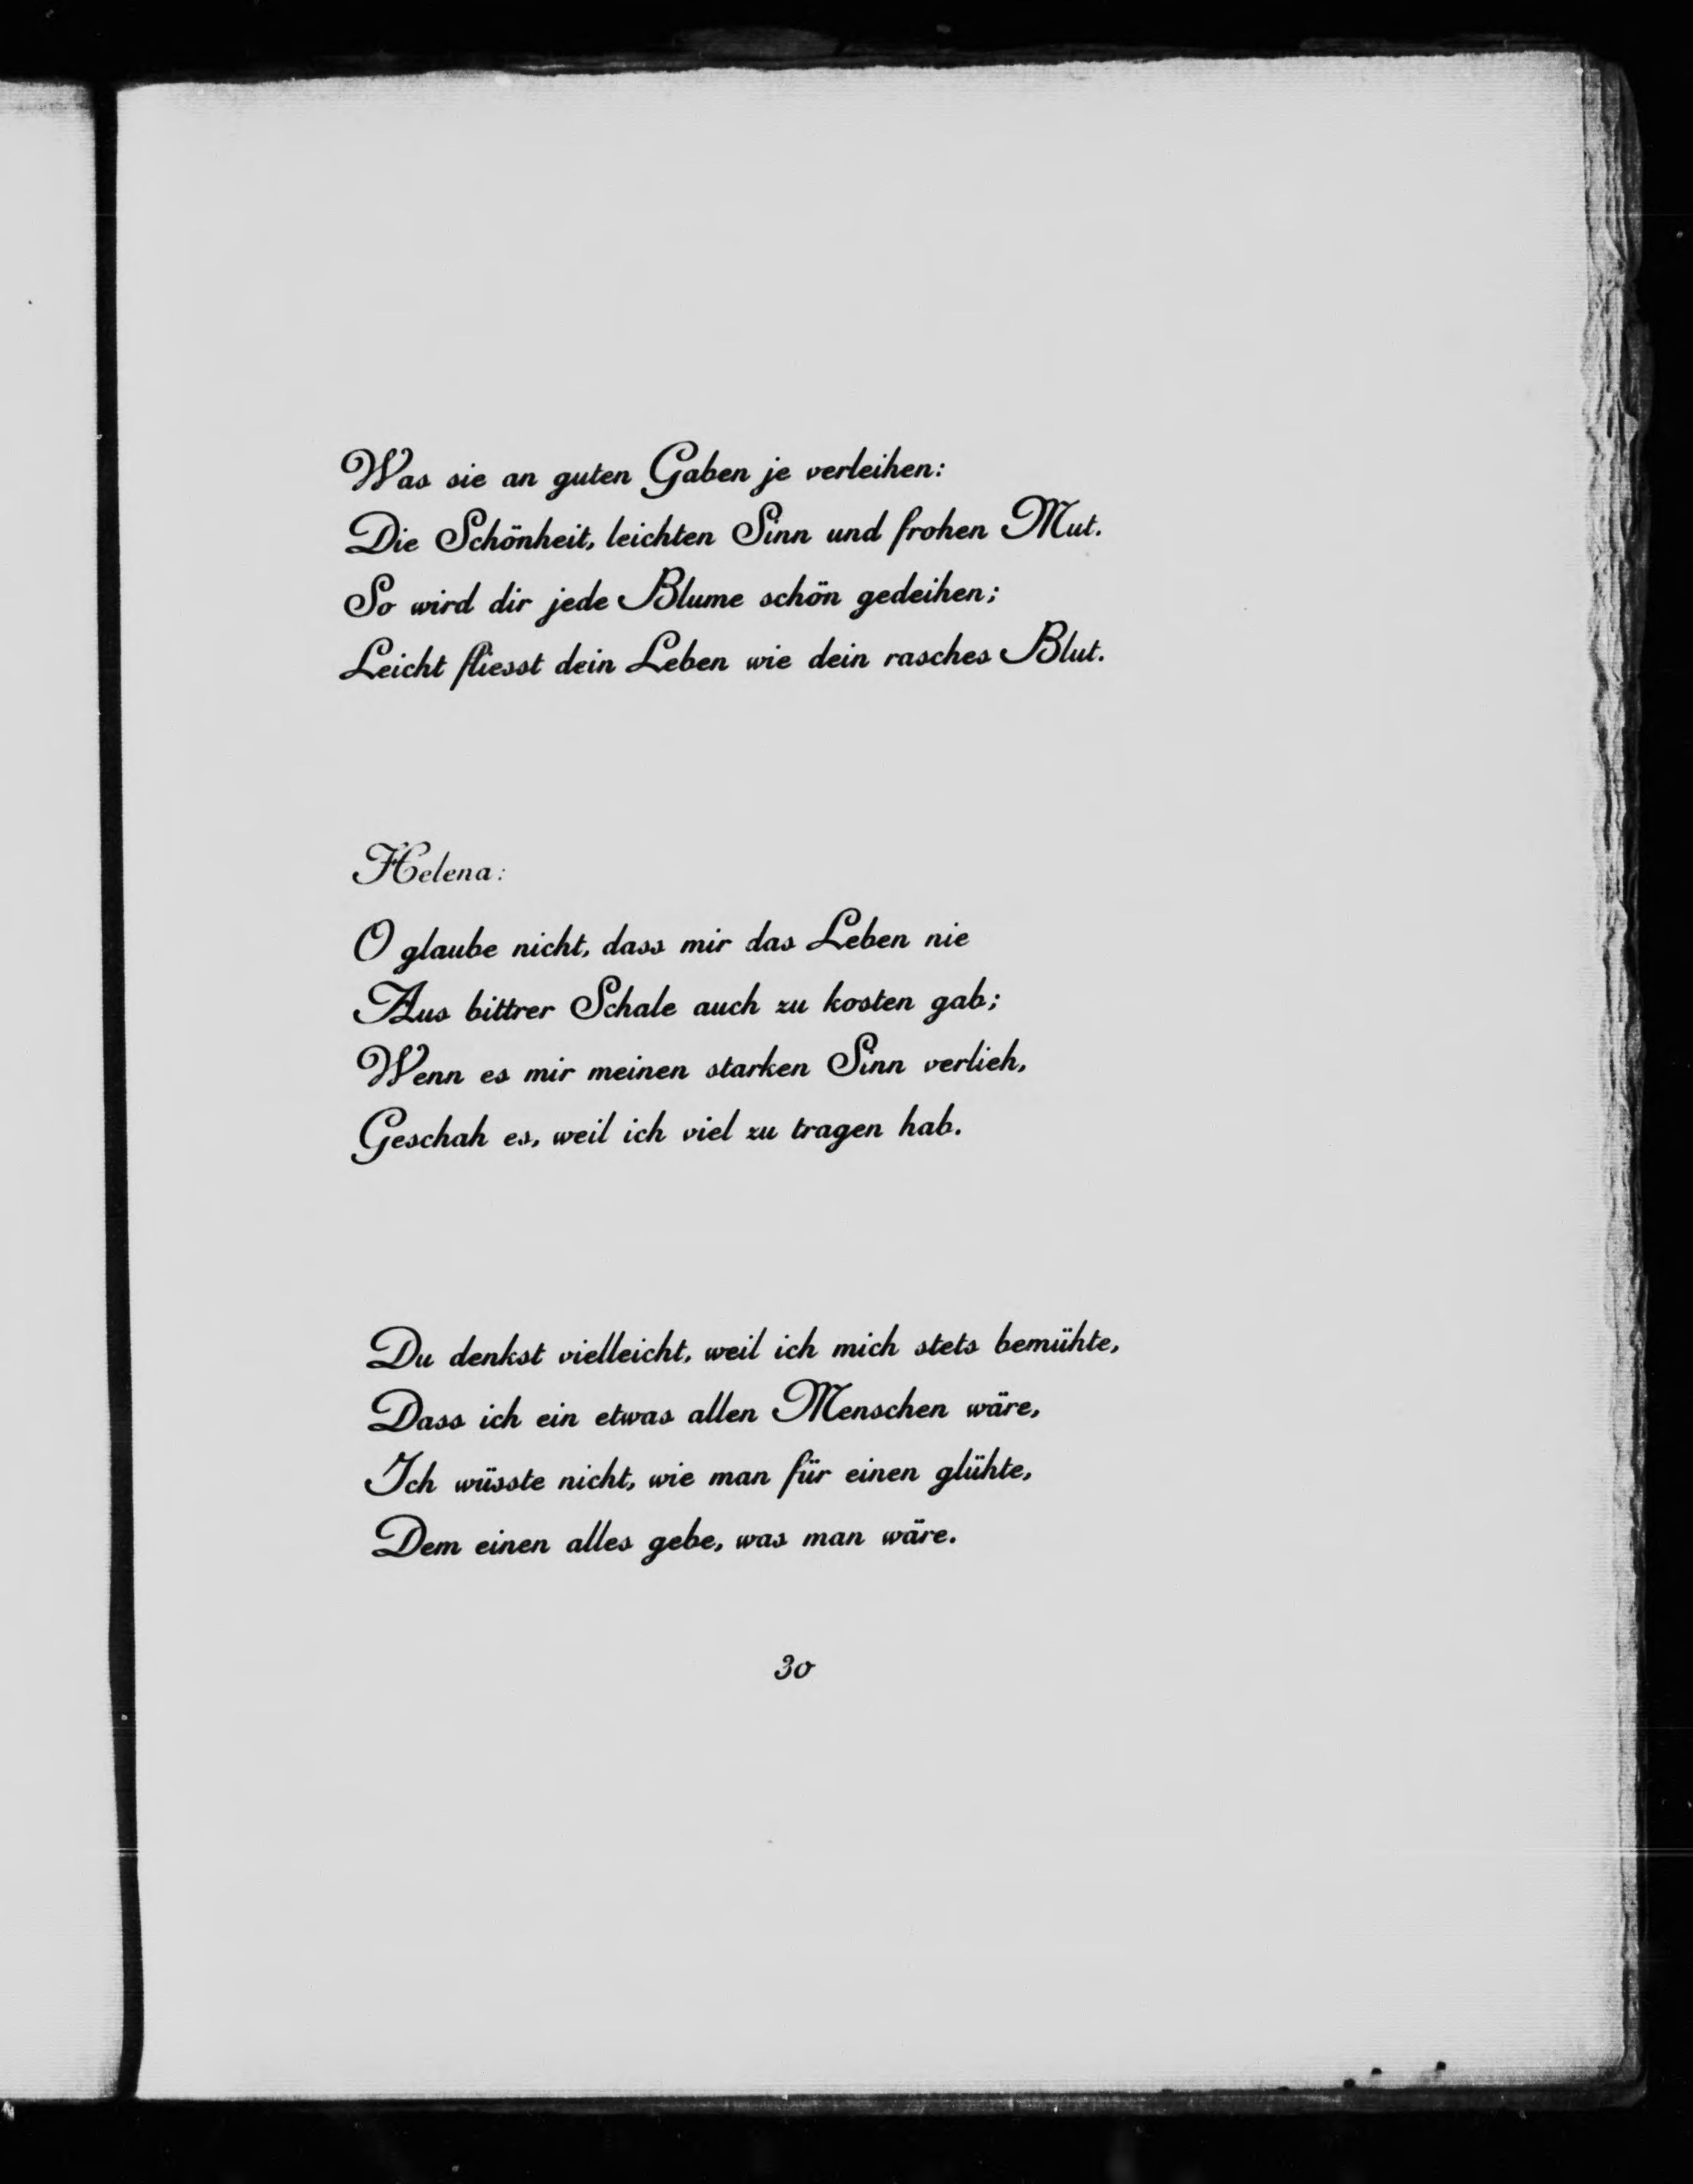 Was sie an guten Gaben je verleihen:
Die Schönheit, leichten Sinn und frohen Mut.
So wird dir jede Blume schön gedeihen;
Leicht fliesst dein Leben wie dein rasches Blut.
Helena:
O glaube nicht, dass mir das Leben nie
Aus bittrer Schale auch zu kosten gab;
Wenn es mir meinen starken Sinn verlieh,
Geschah es, weil ich viel zu tragen hab.
Du denkst vielleicht, weil ich mich stets bemühte,
Dass ich ein etwas allen Menschen wäre,
Ich wüsste nicht, wie man für einen glühte,
Dem einen alles gebe, was man wäre.
30